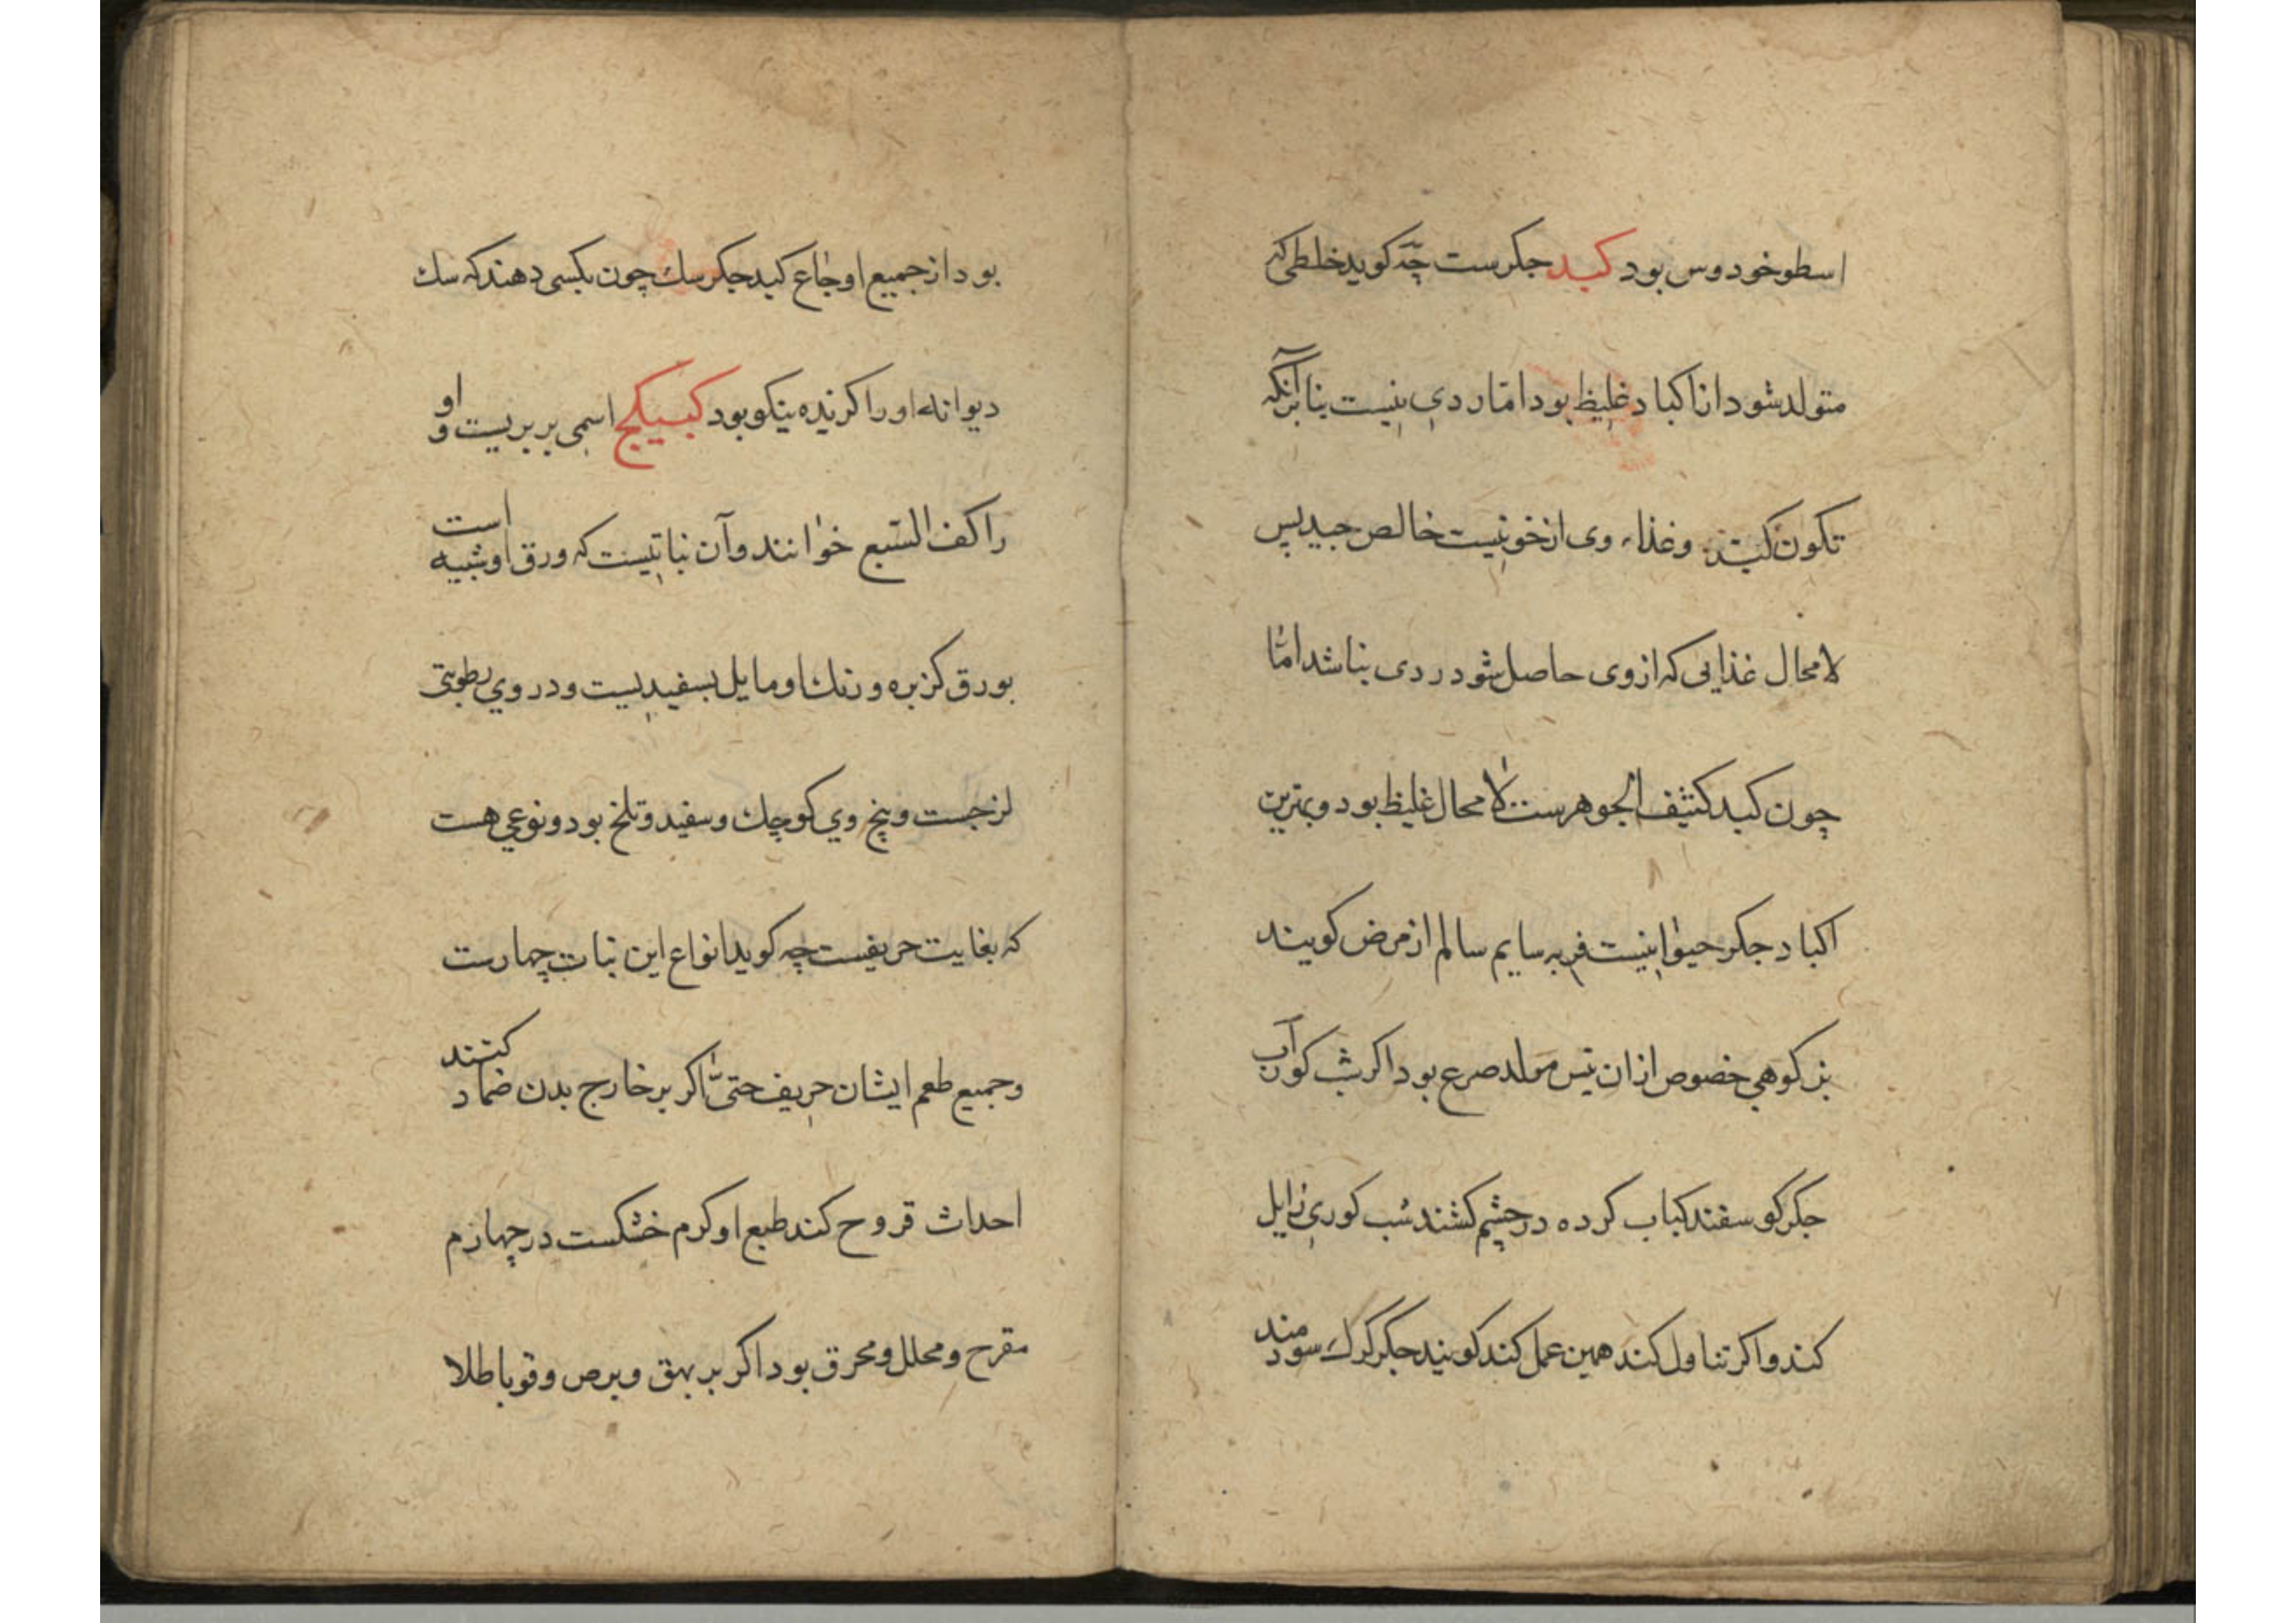 اسطوخودوس بود کبد جکرست چه کوید خلطی که
متولد شود از اکباد غلیظ بود اما ردی نیست بنا برآنکه
تکون کبد وغذاء وی از خونیست خالص جید پس
لامحال غذایی که از وی حاصل شود ردی نباشد اما
چون کبد کثیف الجوهرست لامحال غلیظ بود و بهترین
اکباد جکر حیوانیست فربه سایم سالم از مرض کویند
بز کوهی خصوص از ان تیس مولد صرع بود اکر شب کور آب
جکر کوسفند کباب کرده در چشم کشند شب کوری زایل
کند واکر تناول کند همین عمل کند کویند جکر کرک سودمند
بود از جمیع اوجاع کبد جکر سك چون بکسی دهند که سك
دیوانه او را کزیده نیکو بود کبیکج اسمی بربریست و او
را کف السبع خوانند وآن نباتیست که ورق او شبیه است
بورق کزبره و رنك او مایل بسفیدیست ودر وی رطوبتی
لزجست وبیخ وی کوچك وسفید وتلخ بود ونوعی هست
که بغایت حریفست چه کوید انواع این نبات چهارست
وجمیع طعم ایشان حریف حتی اکر بر خارج بدن ضماد کنند
احداث قروح کند طبع او کرم خشکست در چهارم
مقرح ومحلل ومحرق بود اکر بر بهق وبرص وقوبا طلا